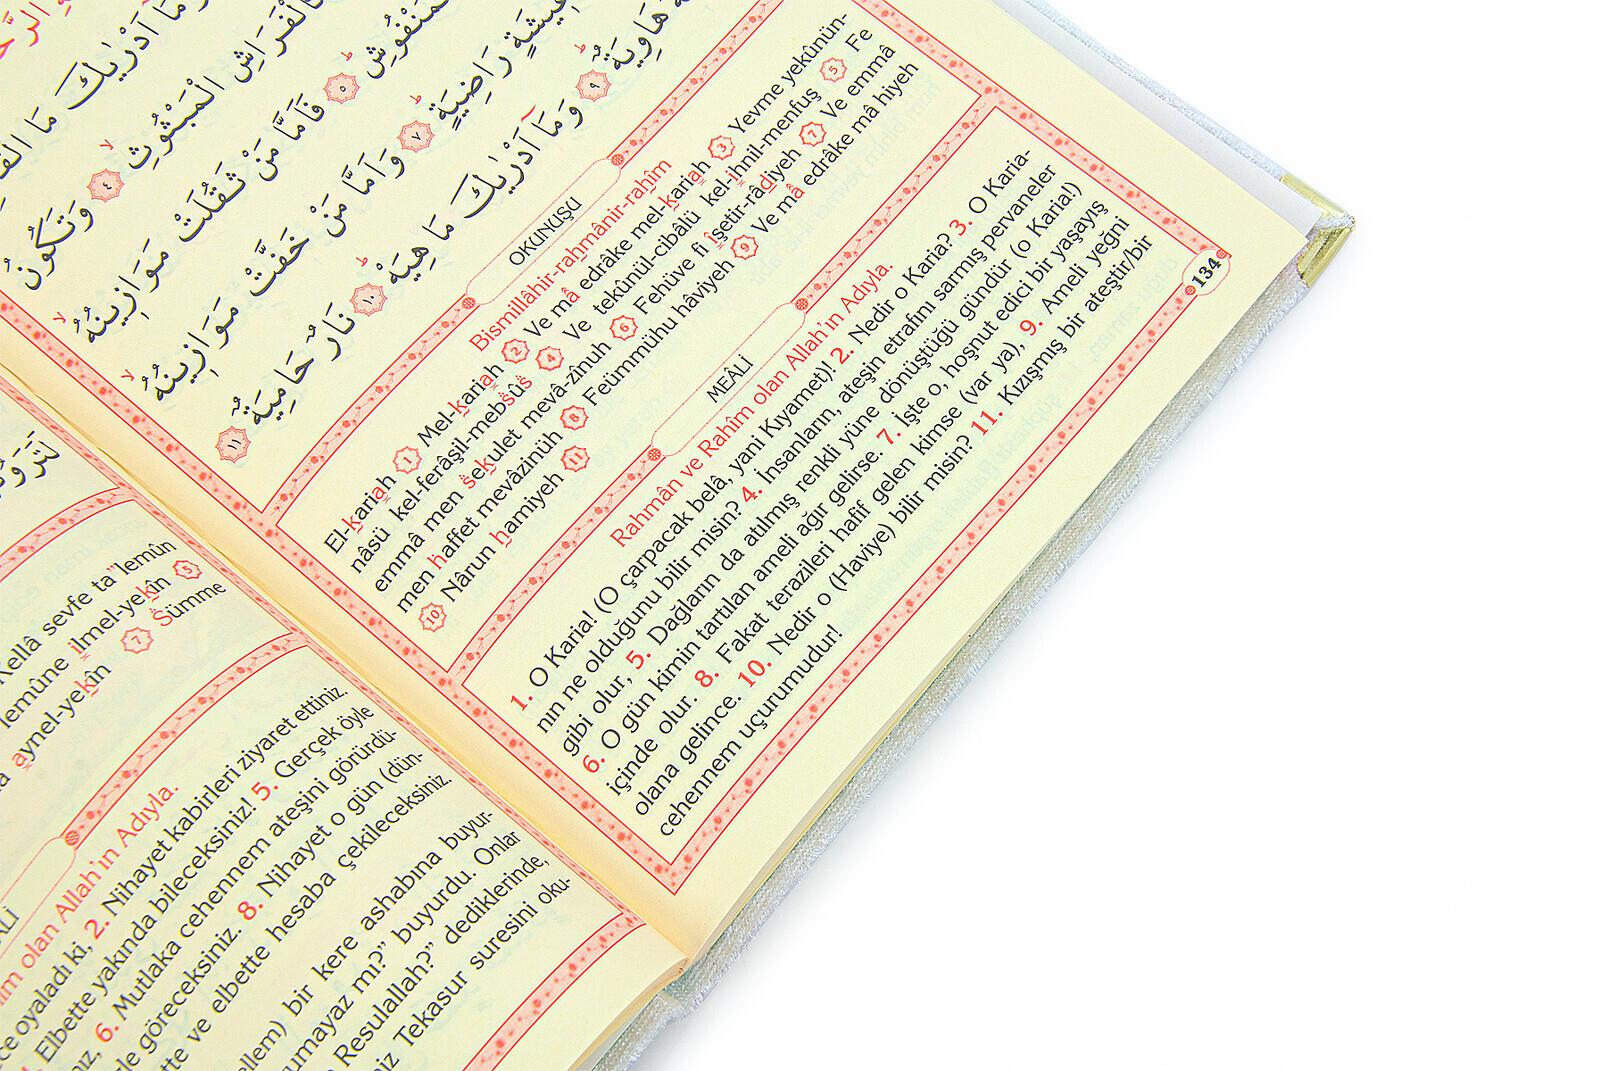 وَمَا اَدْرٰيكَ مَا
الْمَبْثُوثِ ٤ وَتَكُونُ
الْمَنْفُوشِ ٥ فَاَمَّا مَنْ ثَقُلَتْ مَوَازِينُهُ
عِيشَةٍ رَاضِيَةٍ ٧ وَاَمَّا مَنْ خَفَّتْ مَوَازِينُهُ
هَاوِيَةٌ ٩ وَمَا اَدْرٰيكَ مَا هِيَهْ ١٠ نَارٌ حَامِيَةٌ ١١
OKUNUŞU
Bismillâhir-rahmânir-rahîm
El-kariah 1 Mel-kariah 2 Ve mâ edrâke mel-kariah 3 Yevme yekûnün-
nâsü kel-ferâşil-mebsûs 4 Ve tekûnül-cibâlü kel-ihnil-menfuş 5 Fe
emmâ men sekulet mevâ-zînuh 6 Fehüve fî îşetir-râdiyeh 7 Ve emmâ
men haffet mevâzinüh 8 Feümmühu hâviyeh 9 Ve mâ edrâke mâ hiyeh
10 Nârun hamiyeh 11
MEÂLİ
Rahmân ve Rahîm olan Allah'ın Adıyla.
1. O Karia! (O çarpacak belâ, yani Kıyamet)! 2. Nedir o Karia? 3. O Karia-
nın ne olduğunu bilir misin? 4. İnsanların, ateşin etrafını sarmış pervaneler
gibi olur, 5. Dağların da atılmış renkli yüne dönüştüğü gündür (o Karia!)
6. O gün kimin tartılan ameli ağır gelirse. 7. İşte o, hoşnut edici bir yaşayış
içinde olur. 8. Fakat terazileri hafif gelen kimse (var ya), 9. Ameli yeğni
olana gelince. 10. Nedir o (Haviye) bilir misin? 11. Kızışmış bir ateştir/bir
cehennem uçurumudur!
134
Kellâ sevfe ta'lemûn
lemûne ilmel-yekîn 5
aynel-yekîn 7 Sümme
olan Allah'ın Adıyla.
oyaladı ki, 2. Nihayet kabirleri ziyaret ettiniz.
Elbette yakında bileceksiniz! 5. Gerçek öyle
6. Mutlaka cehennem ateşini görürdü-
göreceksiniz. 8. Nihayet o gün (dün-
ve elbette hesaba çekileceksiniz.
bir kere ashabına buyur-
mı?" buyurdu. Onlar
Resulallah?" dediklerinde,
Tekasur suresini oku-